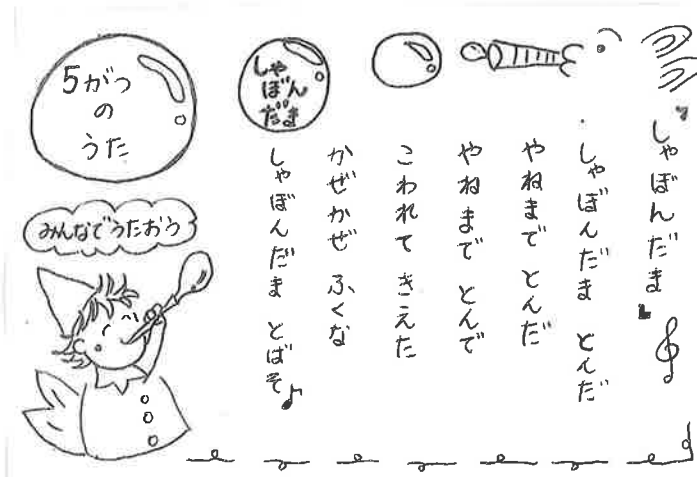 「しゃぼんだま」
しゃぼんだま とんだ
やねまで とんだ
やねまで とんで
こわれて きえた
かぜかぜ ふくな
しゃぼんだま とばそ
しゃ
ぼん
だま
5がつ
の
うた
みんなでうたおう